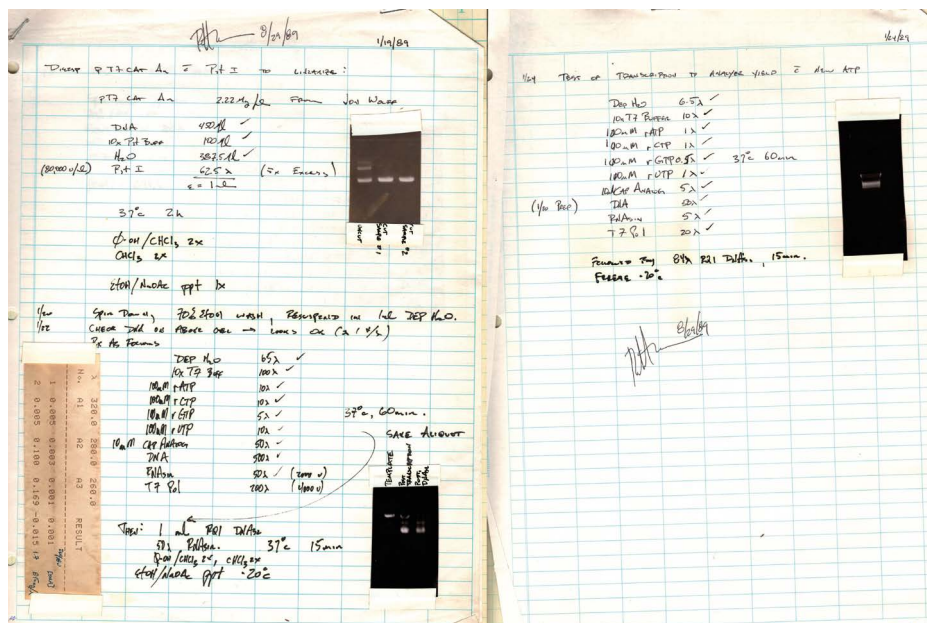 8/29/89
1/19/89
DIGEST pT7 CAT An c̄ Pst I TO LINEARIZE:
pT7 CAT An 2.22 µg/µl FROM JON WOLFF
DNA 450λ ✓
10x Pst BUFF 100λ ✓
H₂O 387.5λ ✓
(80,000 u/ml) Pst I 62.5λ (5x EXCESS)
Σ = 1 ml
37°C 2h
Ø-OH/CHCl₃ 2x
CHCl₃ 2x
EtOH/NaOAc ppt 1x
UNCUT
CUT SAMPLE #1
CUT SAMPLE #2
1/20 SPIN DOWN, 70% EtOH WASH, RESUSPEND IN 1ml DEP H₂O.
1/22 CHECK DNA ON ABOVE GEL → LOOKS OK
Rx AS FOLLOWS
DEP H₂O 65λ ✓
10x T7 BUFF 100λ ✓
100mM rATP 10λ ✓
100mM rCTP 10λ ✓
100mM rGTP 5λ ✓
100mM rUTP 10λ ✓
10mM CAP ANALOG 50λ ✓
DNA 500λ ✓
RNAsin 50λ ✓ (2000 u)
T7 Pol 200λ (4000 u)
37°C, 60min.
SAVE ALIQUOT
TEMPLATE
POST TRANSCRIPTION
POST DNAse
THEN: 1 ml RQ1 DNAse
50λ RNAsin. 37°C 15min
Ø-OH/CHCl₃ 2x, CHCl₃ 2x
EtOH/NaOAc ppt -20°C
λ 320.0 280.0 260.0
No. A1 A2 A3 RESULT
1 0.005 0.003 0.001 0.001
2 0.005 0.100 0.169 -0.015
1/24/89
1/24 TEST OF TRANSCRIPTION TO ANALYZE YIELD c̄ NEW ATP
DEP H₂O 6.5λ ✓
10x T7 BUFFER 10λ ✓
100mM rATP 1λ ✓
100mM rCTP 1λ ✓
100mM rGTP 0.5λ ✓ 37°C 60min
100mM rUTP 1λ ✓
10mM CAP ANALOG 5λ ✓
(1/10 PREP) DNA 50λ ✓
RNAsin 5λ ✓
T7 Pol 20λ ✓
FOLLOWED BY 84λ RQ1 DNAse, 15min.
FREEZE -20°C
8/29/89